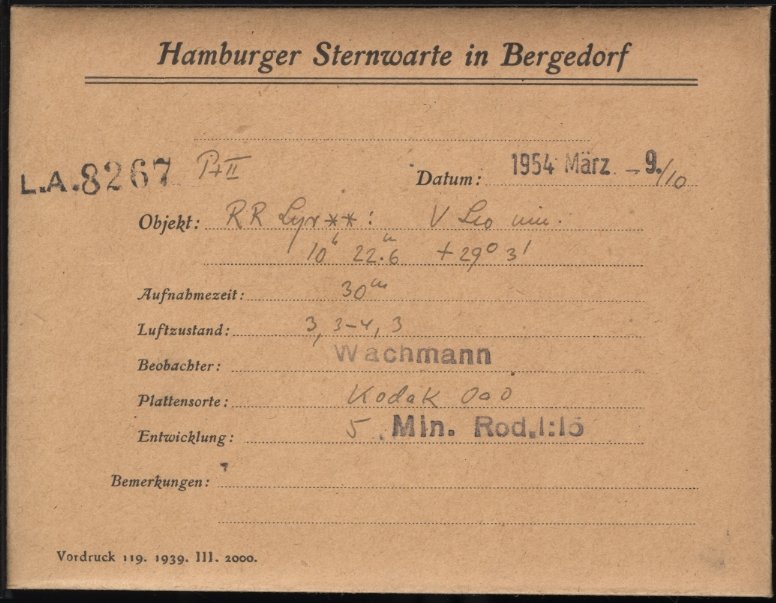 Hamburger Sternwarte in Bergedorf
L.A. 8267 Pt II
Datum: 1954 März - 9./10
Objekt: RR Lyr **: V Leo min.
10h 22.m6 +29° 3'
Aufnahmezeit: 30m
Luftzustand: 3, 3-4, 3
Beobachter: Wachmann
Plattensorte: Kodak OaO
Entwicklung: 5 Min. Rod. 1:15
Bemerkungen:
Vordruck 119. 1939. III. 2000.